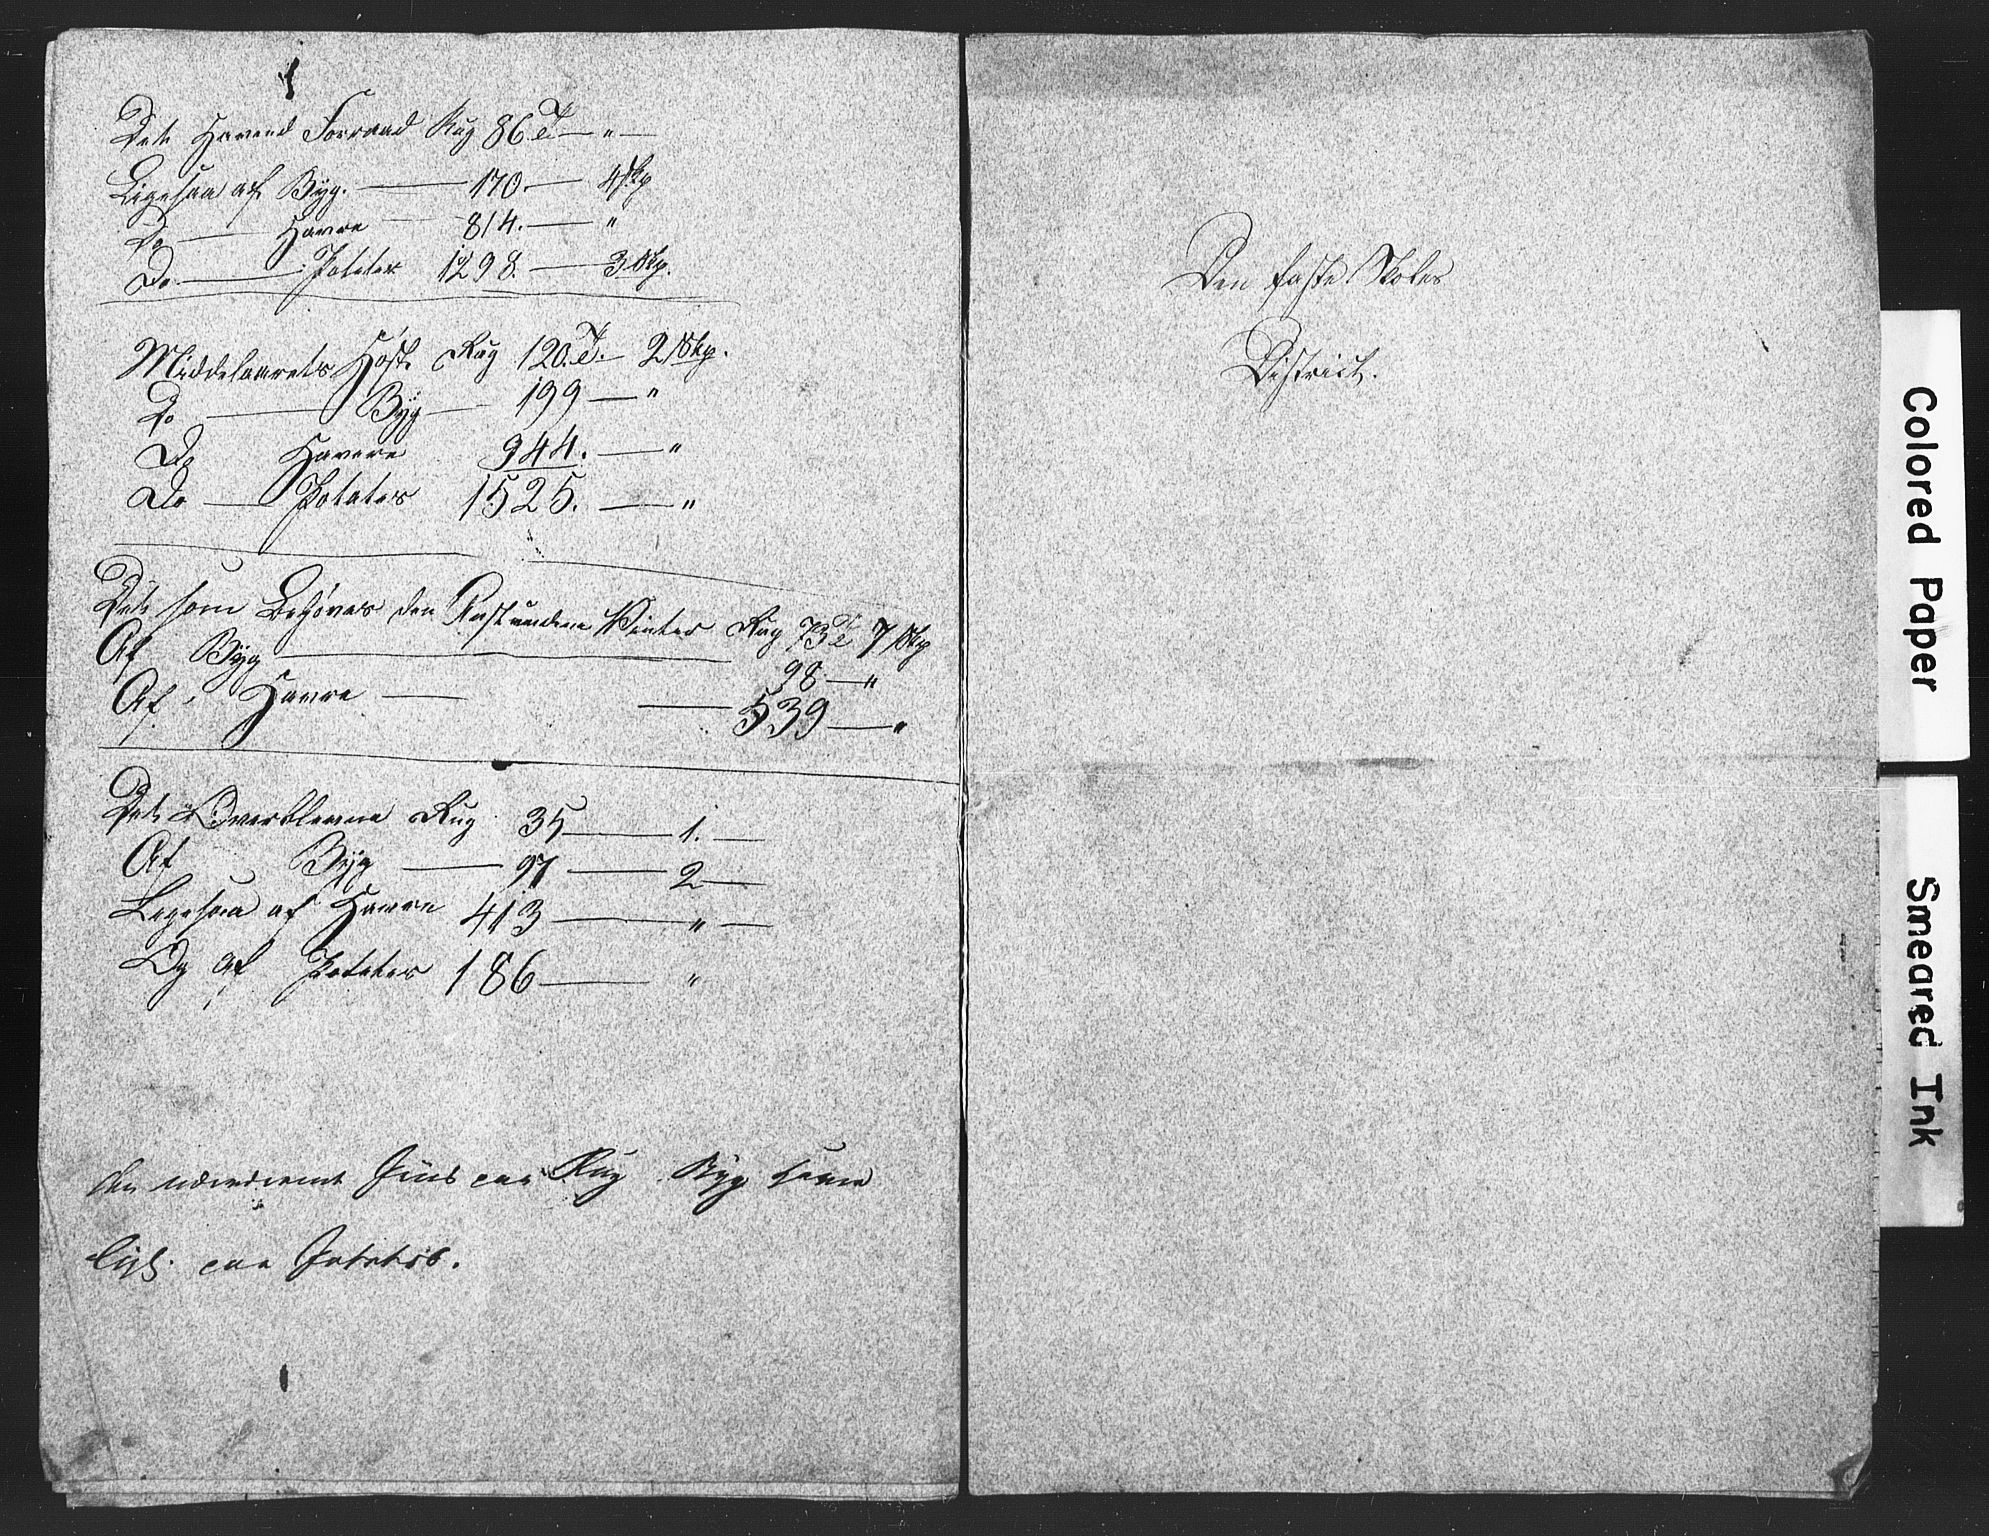 Det Havend Forraad Rug 86 T — " —
Ligesaa af Byg. — 170. — 4 Skp
Do — Havre — 814. — "
Do. — Poteter 1298. — 3 Skp.
Middelaarets Høst. Rug 120. T. — 2 Skp.
Do — Byg — 199 — "
Do Havere 944. — "
Do — Potates 1525. — "
Det som Behøves den Anstundene Winter Rug 73 T 7 Skp
Af Byg — 98 — "
Af Havre — 539 — "
Det Overblevne Rug 35 — 1. —
Af Byg — 97 — 2 —
Legesaa af Havre 413 — " —
Og af Potetes 186 — "
paa Rug Byg
paa Potetes.
Den faste Skoles
District.
Colored Paper
Smeared Ink